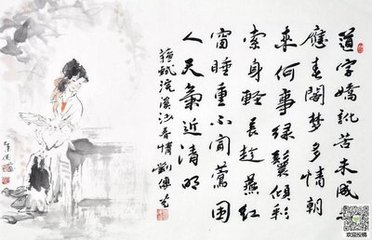 道字嬌訛苦未成未
應春閣夢多情朝
來何事綠鬟傾彩
索身輕長趁燕紅
窗睡重不聞鶯困
人天氣近清明
蘇軾浣溪沙春情 劉
欢迎投稿